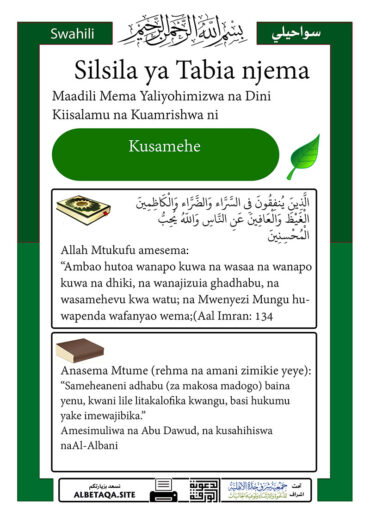 Swahili
بسم الله الرحمن الرحيم
سواحيلي
Silsila ya Tabia njema
Maadili Mema Yaliyohimizwa na Dini
Kiisalamu na Kuamrishwa ni
Kusamehe
الَّذِينَ يُنفِقُونَ فِي السَّرَّاء وَالضَّرَّاء وَالْكَاظِمِينَ
الْغَيْظَ وَالْعَافِينَ عَنِ النَّاسِ وَاللَّهُ يُحِبُّ
الْمُحْسِنِينَ
Allah Mtukufu amesema:
“Ambao hutoa wanapo kuwa na wasaa na wanapo
kuwa na dhiki, na wanajizuia ghadhabu, na
wasamehevu kwa watu; na Mwenyezi Mungu hu-
wapenda wafanyao wema;(Aal Imran: 134
Anasema Mtume (rehma na amani zimikie yeye):
“Sameheaneni adhabu (za makosa madogo) baina
yenu, kwani lile litakalofika kwangu, basi hukumu
yake imewajibika.”
Amesimuliwa na Abu Dawud, na kusahihiswa
naAl-Albani
نسعد بزيارتكم
ALBETAQA.SITE
تحت
اشراف